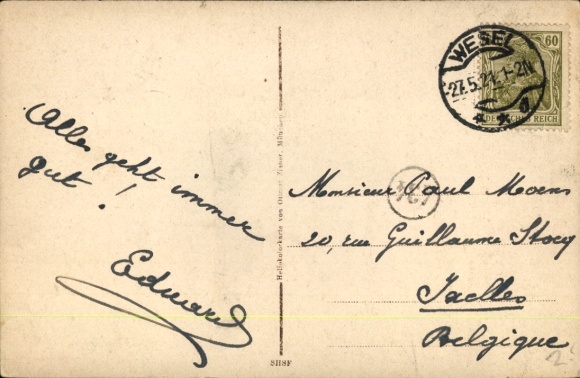 Alles geht immer
gut!
Eduard
Hellokolorkarte von Ottmar Zieher, München
SHSF
WESEL
27.5.21. 1-2N
* * d
60
DEUTSCHES REICH
Monsieur Paul Moens
20, rue Guillaume Stocq
Ixelles
Belgique